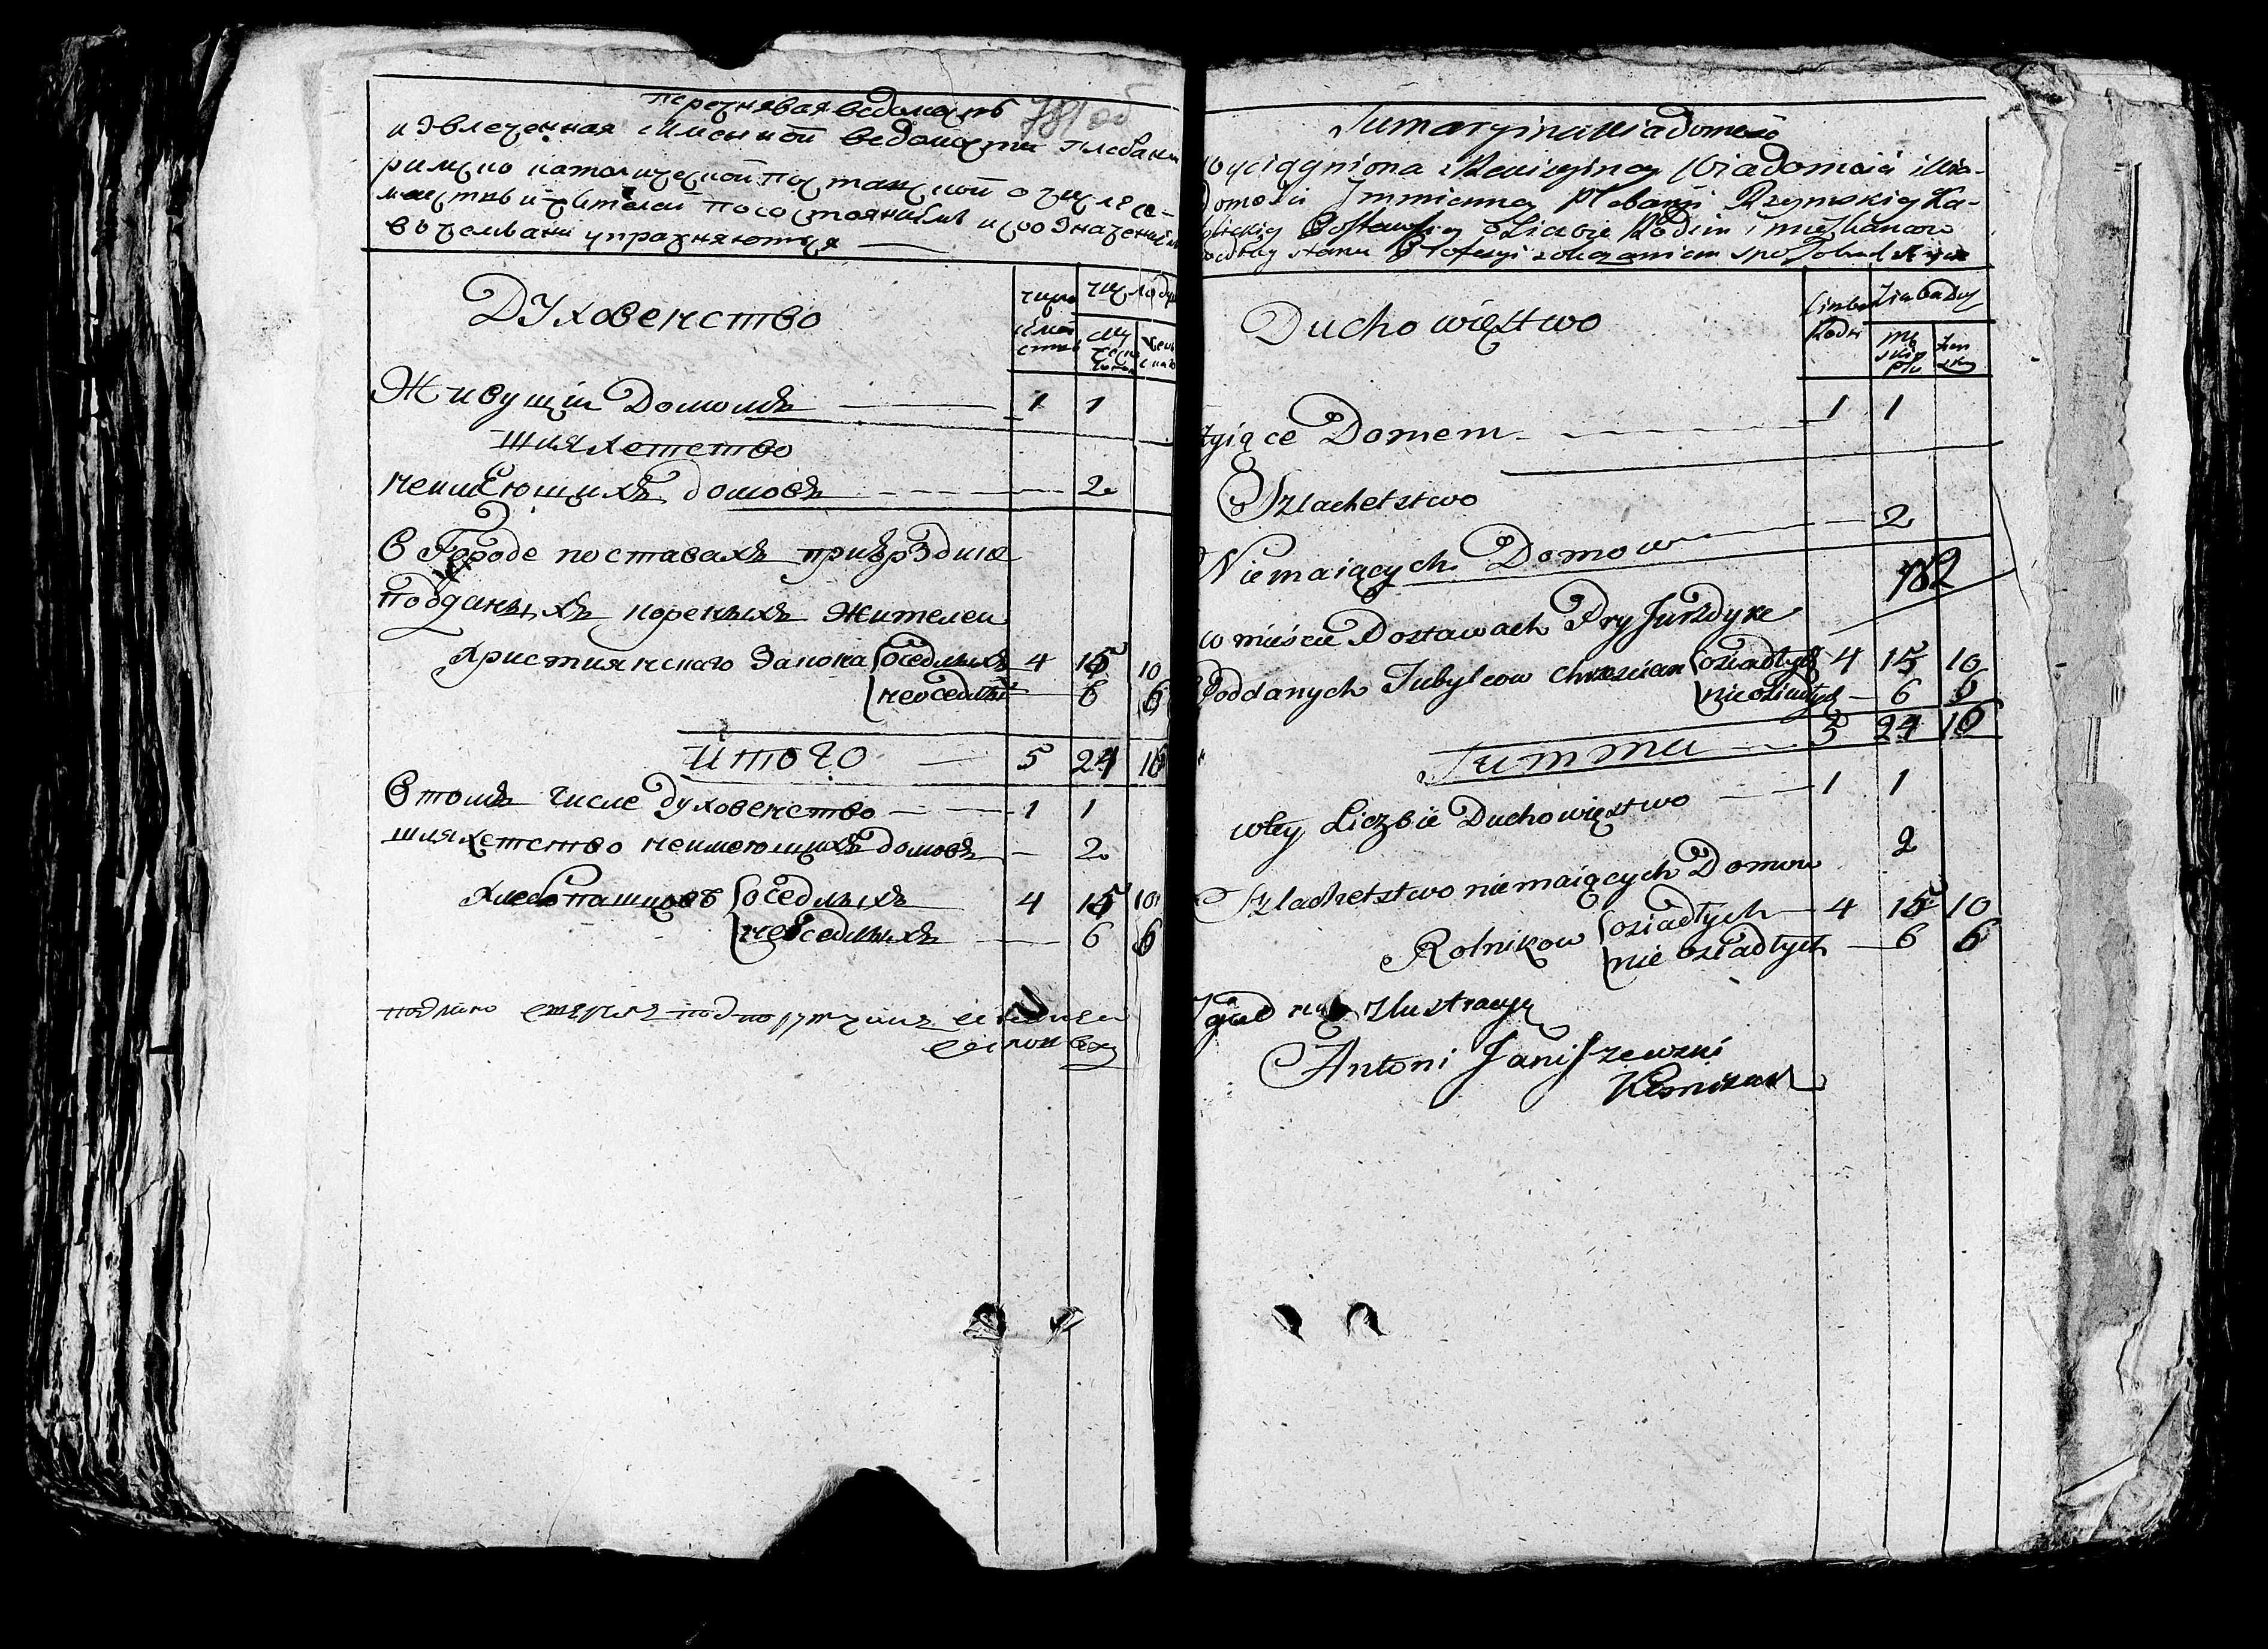 781 об
Перечневая ведомость
извлеченная имянной ведомости плебании
римско католической Поставской о числе се-
мейств и жителей по состояниям и со означением
в чем они упражняются
Духовенство
число
число душ
Живущии Домомъ — 1 1
шляхетство
неимеющихъ домовъ — 2
В Городе поставахъ при юрздике
подданыхъ кореныхъ жителеи
християнскаго Закона оседлыхъ 4 15 10
неоседлыхъ — 6 6
Итого — 5 24 16
В томъ числе духовенство — 1 1
шляхетство неимеющихъ домовъ — 2
хлебопашцовъ оседлыхъ 4 15 10
неоседлыхъ — 6 6
Sumaryczna Wiadomość
wyciągniona Wiadomość i Wia-
domości Immienney Plebanii Rzymskiey Ka-
tolickiey Postawskiey o Liczbie Rodzin i mieszkancow
według stanu Profesyi
Duchowięstwo
Liczba Liczba Dusz
Rodzi
Męskiey Płci
Żen
skiey
Żyiące Domem — 1 1
Szlachetstwo
Niemaiących Domow — 2
782
w mieście Postawach Pry Jurzdyke
Poddanych Tubylcow Chrzescian osiadłych 4 15 10
nieosiadłych — 6 6
Summa — 5 24 16
w tey Liczbie Duchowięstwo — 1 1
Szlachetstwo niemaiących Domow 2
Rolnikow osiadłych — 4 15 10
nie osiadłych — 6 6
Antoni Janiszewski